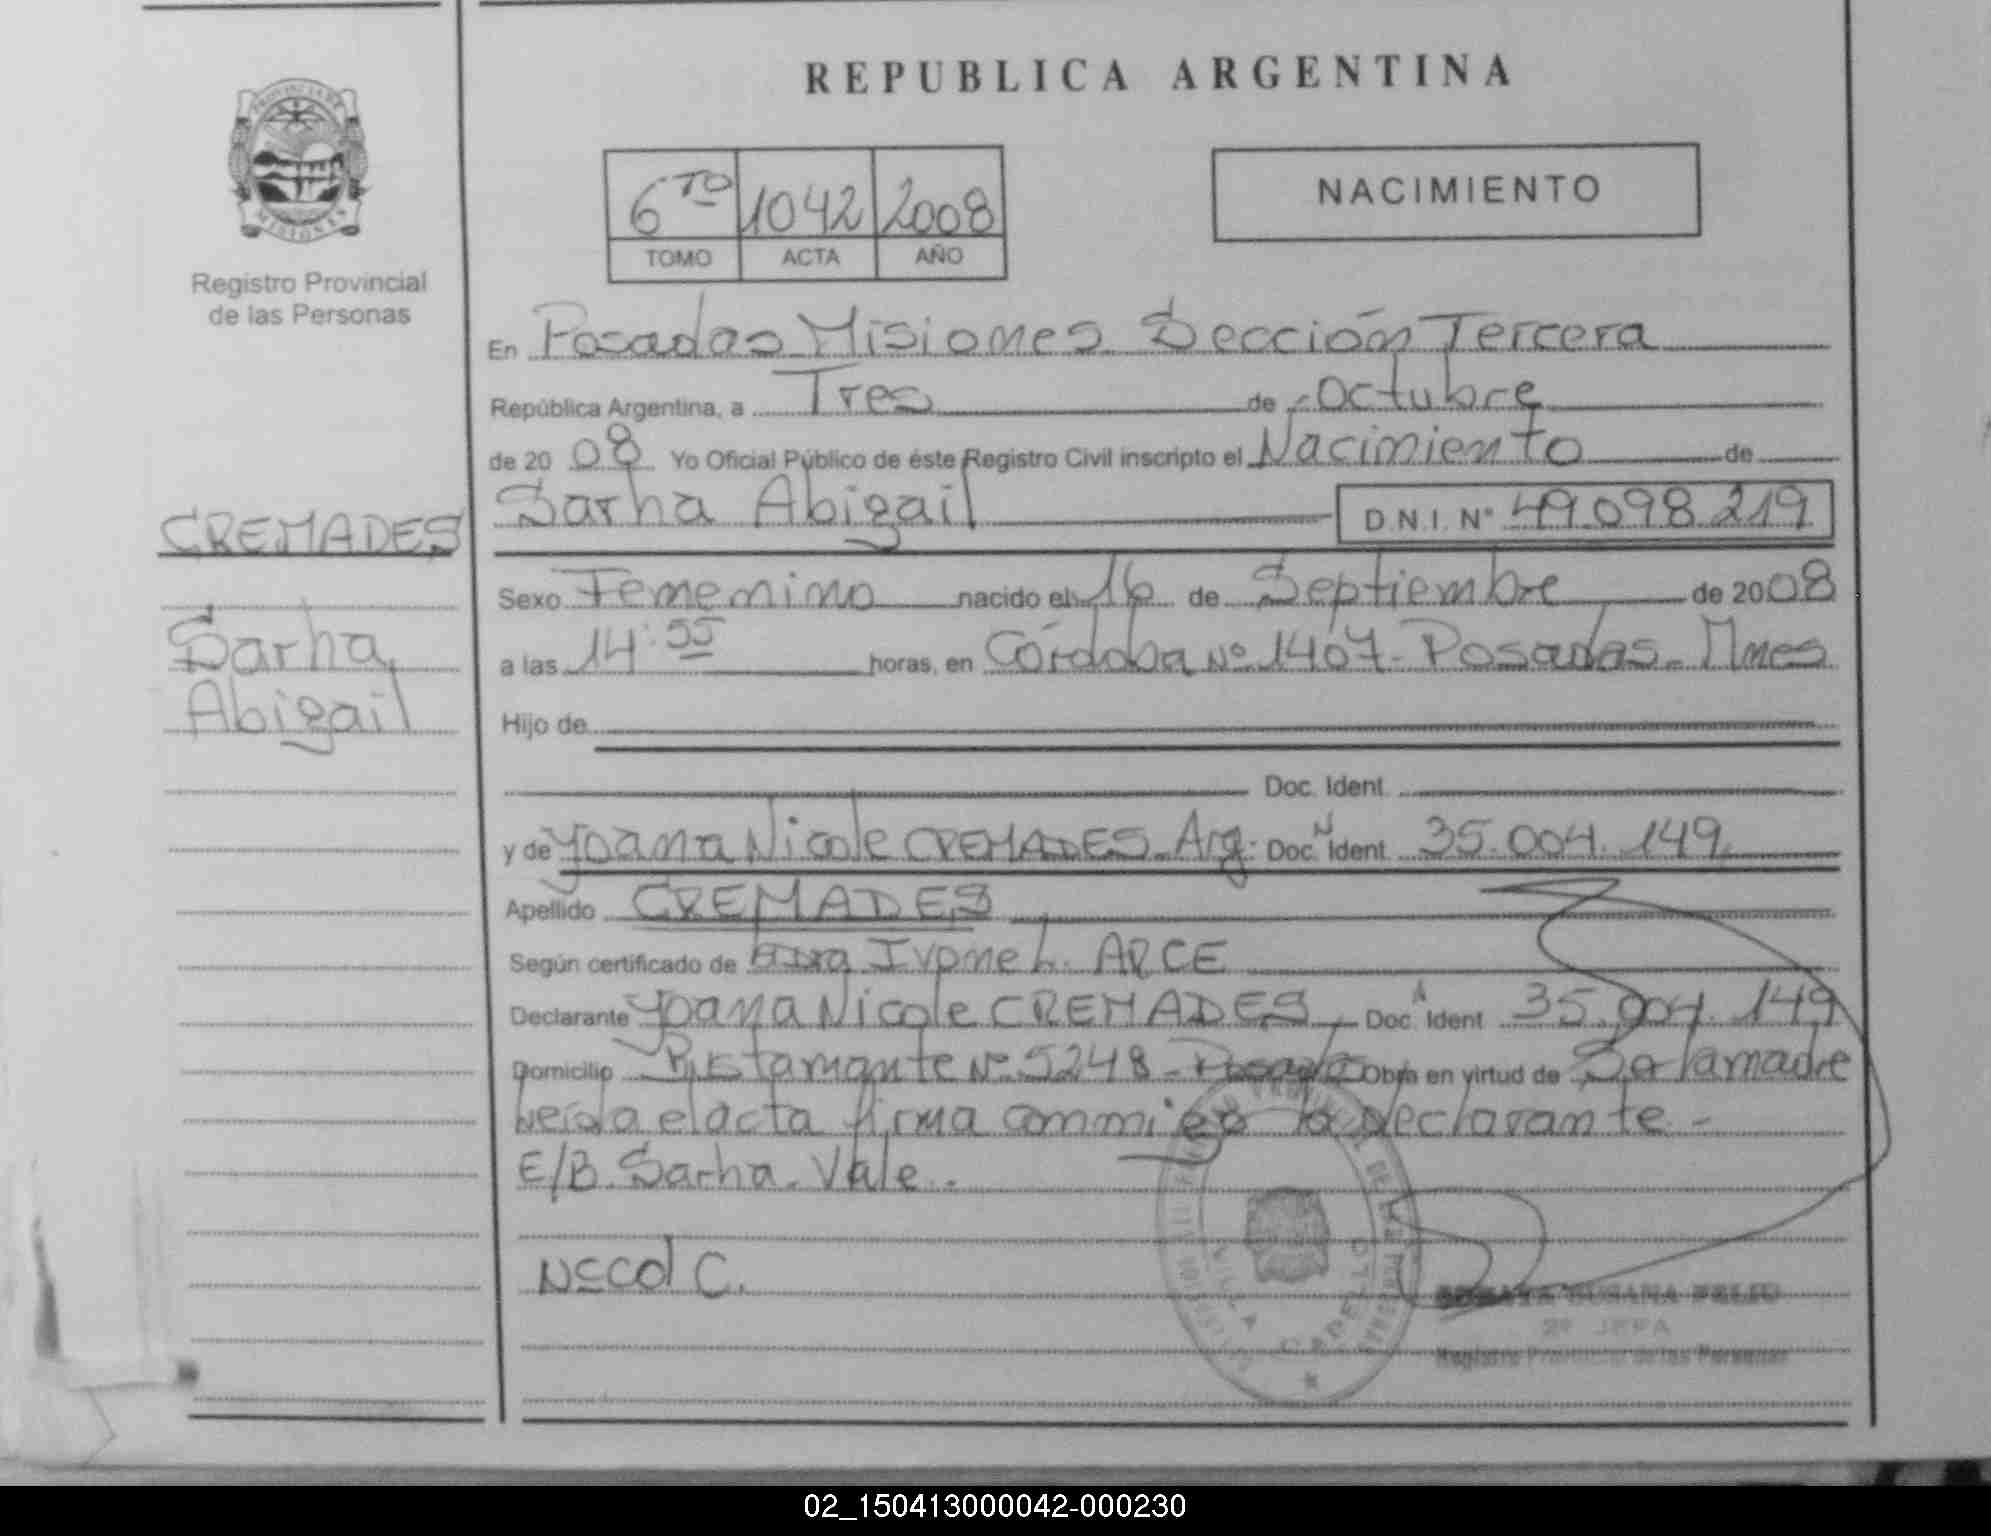 REPUBLICA ARGENTINA
PROVINCIA DE
MISIONES
Registro Provincial
de las Personas
6TO 1042 2008
TOMO ACTA AÑO
NACIMIENTO
En Posadas Misiones Sección Tercera
República Argentina, a Tres de Octubre
de 2008 Yo Oficial Público de éste Registro Civil inscripto el Nacimiento de
CREMADES
Sarha Abigail
Sarha Abigail D.N.I. N° 49.098.219
Sexo Femenino nacido el 16 de Septiembre de 2008
a las 14:55 horas, en Córdoba Nº 1407-Posadas-Mnes
Hijo de
Doc. Ident.
y de Yoana Nicole CREMADES-Arg. Doc. N Ident 35.004.149
Apellido CREMADES
Según certificado de Ivone L. ARCE
Declarante Yoana Nicole CREMADES, Doc. N Ident 35.004.149
Domicilio Bustamante Nº 5248-Posadas Obra en virtud de Ser la madre
Leída el acta firma conmigo la declarante.-
E/B. Sarha. Vale.
Nicol C.
VILLA CABELLO
SUSANA
2º JEFA
Registro Provincial de las Personas
02_150413000042-000230